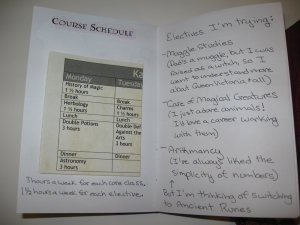 COURSE SCHEDULE
Ka
Monday
Tuesday
History of Magic
1 ½ hours
Break
Break
Herbology
Charms
1 ½ hours
1 ½ hours
Lunch
Lunch
Double Potions
Double Def
3 hours
Against the
Arts
3 hours
Dinner
Dinner
Astronomy
3 hours
3 hours a week for each core class.
1 ½ hours a week for each elective.
Electives I'm trying:
- Muggle Studies
(Dad's a muggle, but I was
raised as a witch, so I
want to understand more
about Queen Victoria & all)
- Care of Magical Creatures
(I just adore animals!
I'd love a career working
with them)
- Arithmancy
(I've always liked the
simplicity of numbers)
But I'm thinking of switching
to Ancient Runes